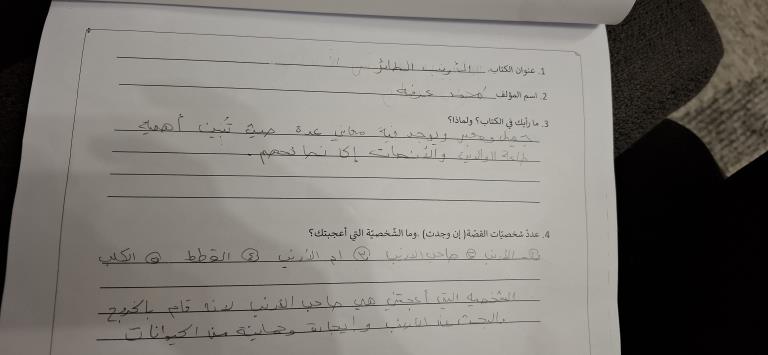 1. عنوان الكتاب. الأرنب الطائر
2. اسم المؤلف محمد عرفة
3. ما رأيك في الكتاب؟ ولماذا؟
ويوجد فية معاني عدة حيث تُبين أهمية
طاعة الوالدين والأنصات إلا نصائحهم.
4. عدّد شخصيّات القصّة( إن وجدت) .وما الشّخصيّة التي أعجبتك؟
① الأرنب ② صاحب الارنب ③ ام الأرنب ④ القطط ⑤ الكلب
الشخصية التي أعجبتني هي صاحب الارنب لانه قام بالخروج
والبحث عن الأرنب و إيجادة وحماية من الحيوانات